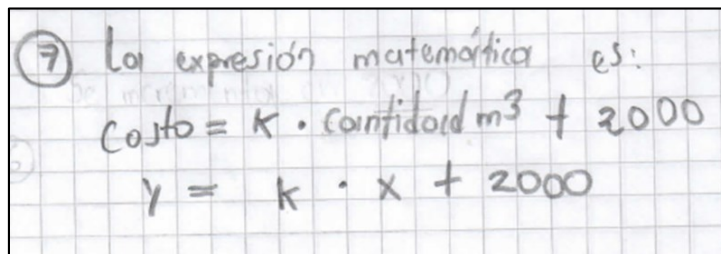 7 La expresión matemática es:
Costo = k . Cantidad m³ + 2000
y = k . x + 2000